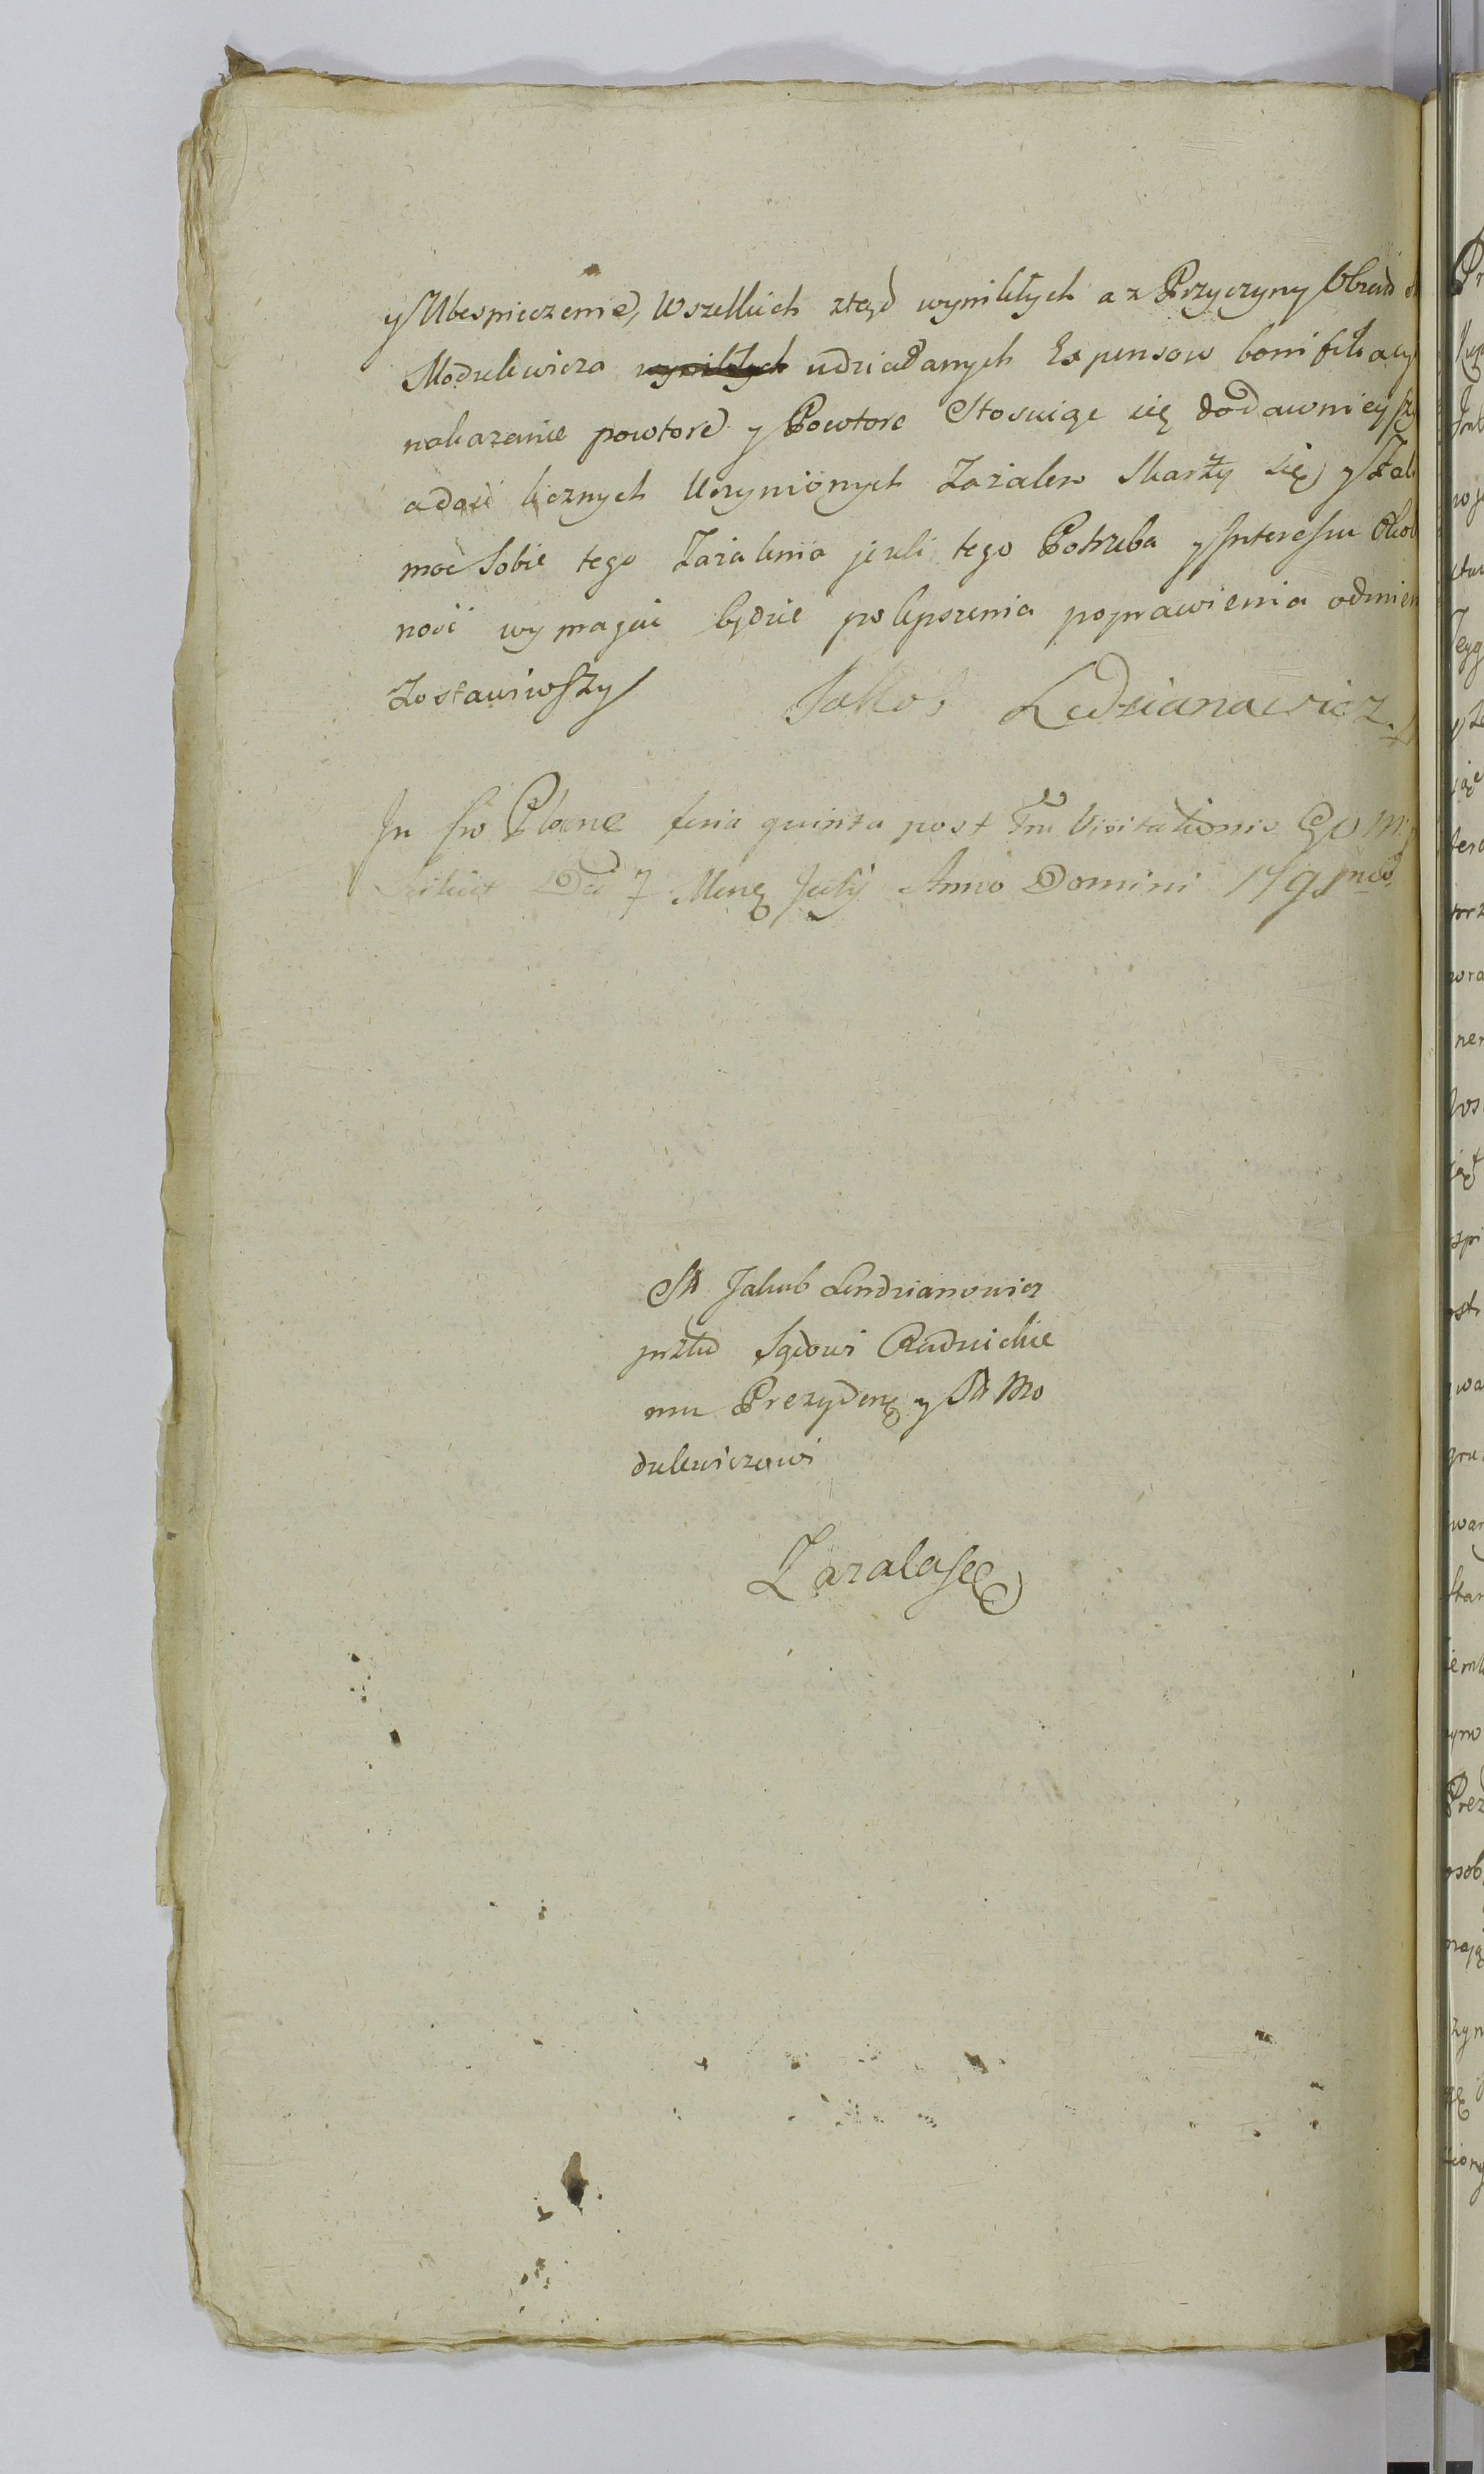 y Ubespieczenie, Wszelkich ztąd wynikłych a z Przyczyny
Modzelewicza wynikłych udziałanych Expensow bonifikacy
nakazanie powtore y Powtore Stosuiąc się do dawniey
a dość licznych Uczynionych Zażalen Skarży się y
moc Sobie tego Zażalenia jezeli tego Potrzeba y Interessu Okol
ność wymagać będzie polepszenia poprawienia odmien
Zostawiwszy
Jakob Ledzianowicz
In feria quinta post Visitationis
Scilicet Die 7 July Anno Domini 1791
Jakub Lendzianowicz
przed Sądowi Radnickie
mu Prezyden y Mo
dzelewiczowi
Zazalase